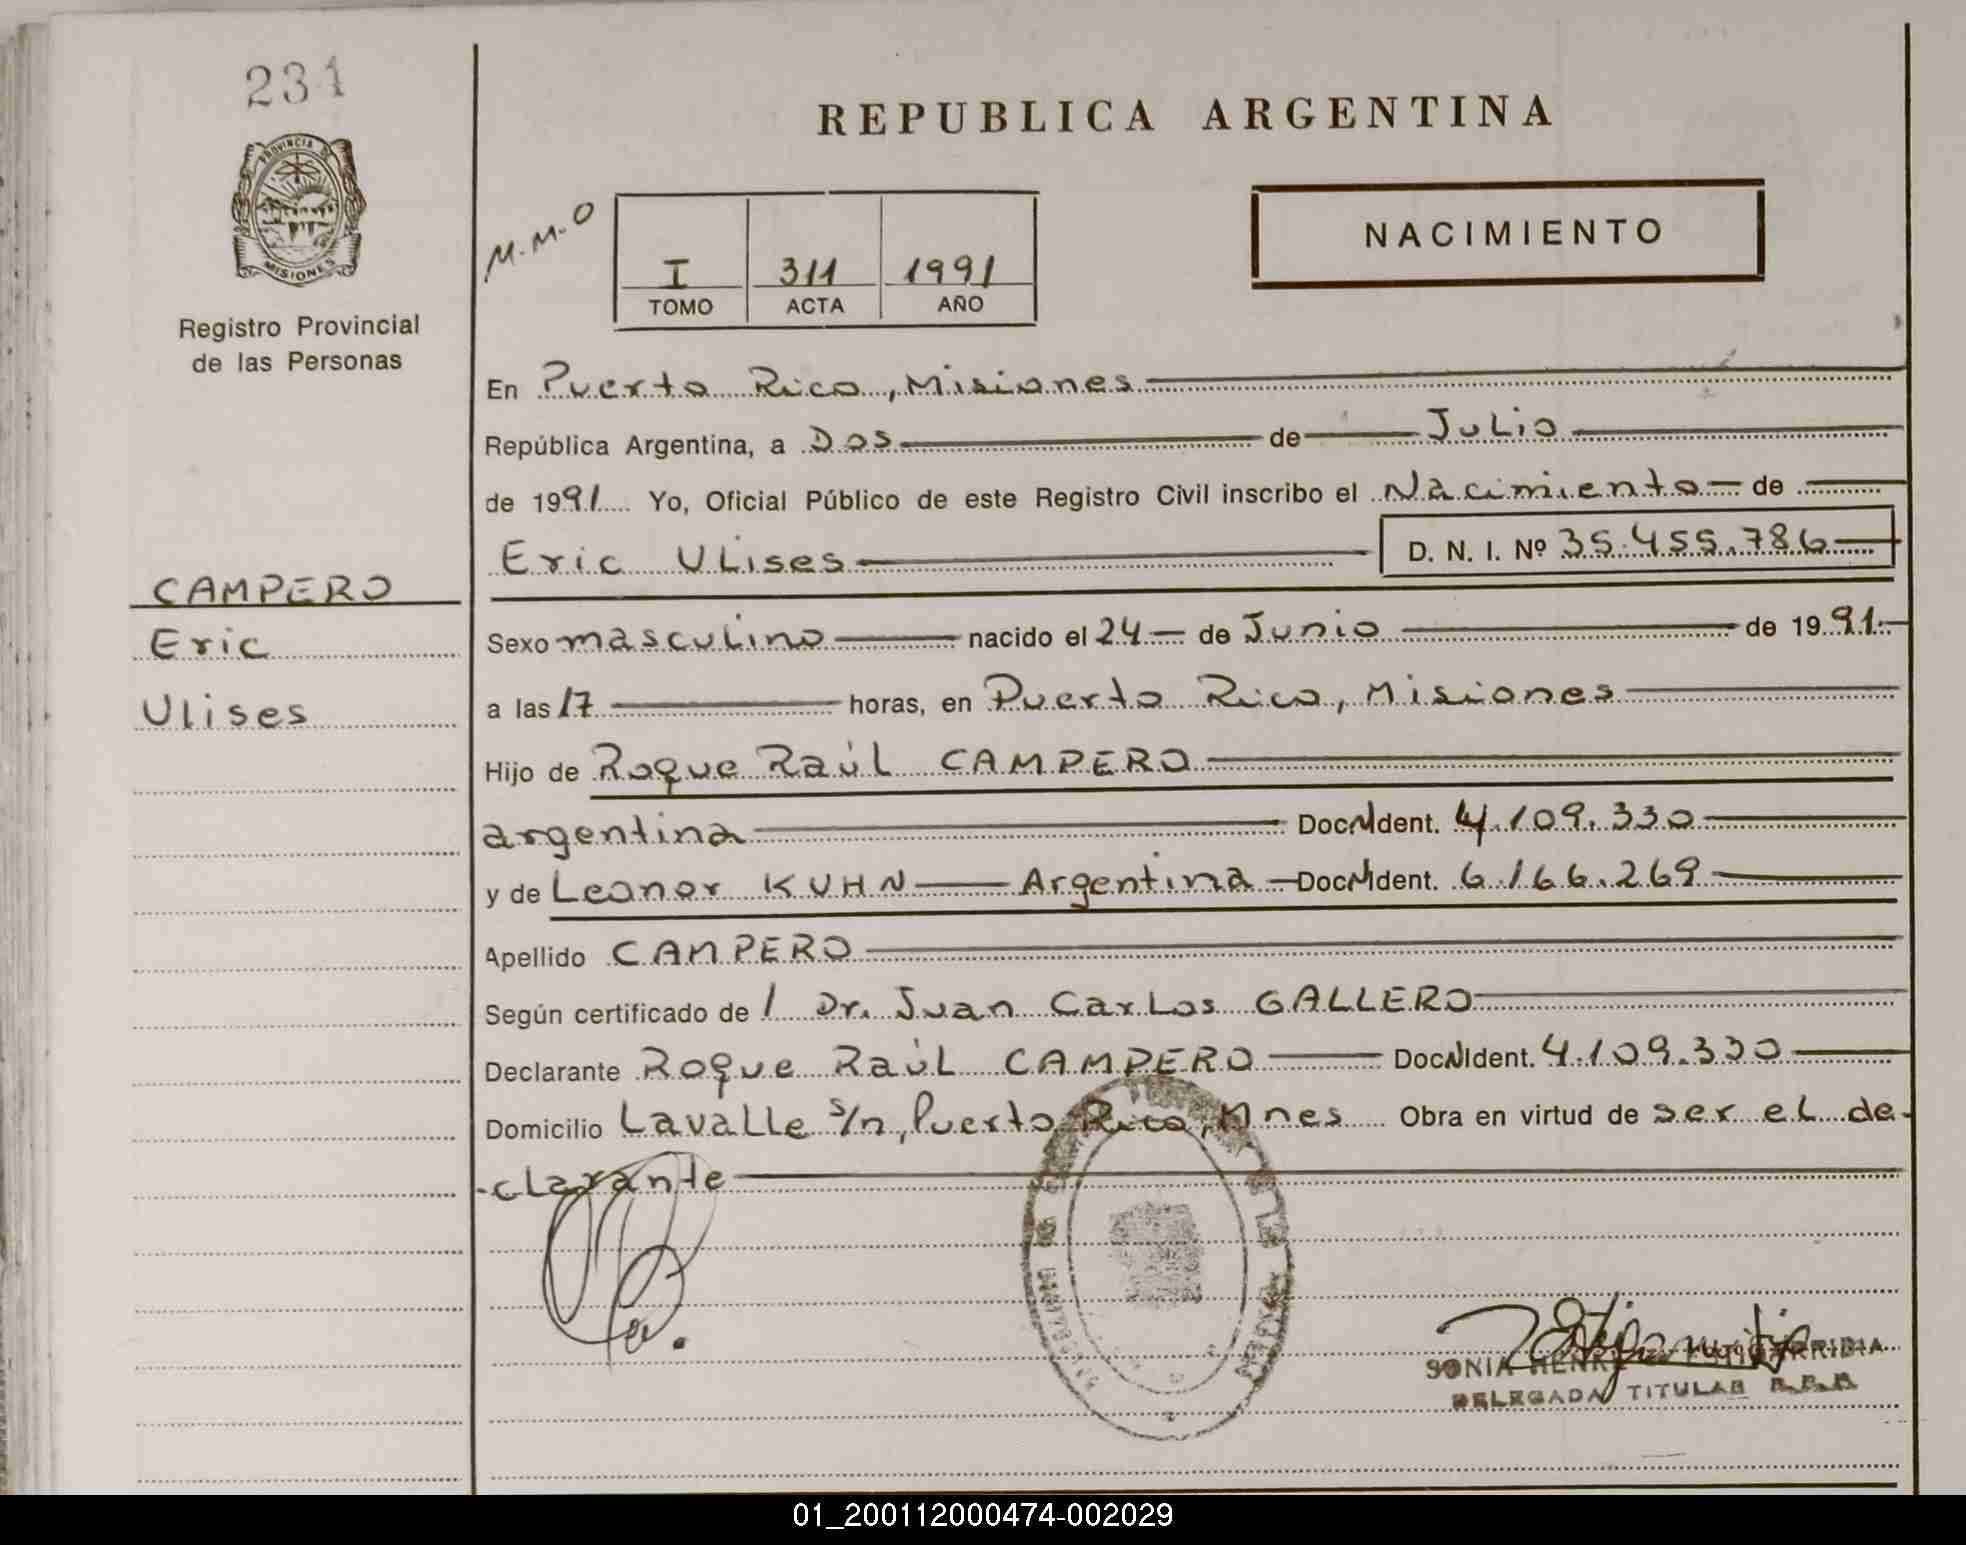 231
PROVINCIA DE
MISIONES
Registro Provincial
de las Personas
REPUBLICA ARGENTINA
M.M.O
I 311 1991
TOMO ACTA AÑO
NACIMIENTO
En Puerto Rico, Misiones
República Argentina, a Dos de Julio
de 1991 Yo, Oficial Público de este Registro Civil inscribo el Nacimiento de
Eric Ulises D. N. I. Nº 35.455.786
CAMPERO
Eric
Ulises
Sexo masculino nacido el 24 de Junio de 1991
a las 17 horas, en Puerto Rico, Misiones
Hijo de Roque Raúl CAMPERO
argentina Doc. N. Ident. 4.109.330
y de Leonor KUHN Argentina Doc. N. Ident. 6.166.269
Apellido CAMPERO
Según certificado de / Dr. Juan Carlos GALLERO
Declarante Roque Raúl CAMPERO Doc. N. Ident. 4.109.330
Domicilio Lavalle s/n, Puerto Rico, Mnes Obra en virtud de ser el de-
-clarante
SONIA
DELEGADA TITULAR
01_200112000474-002029